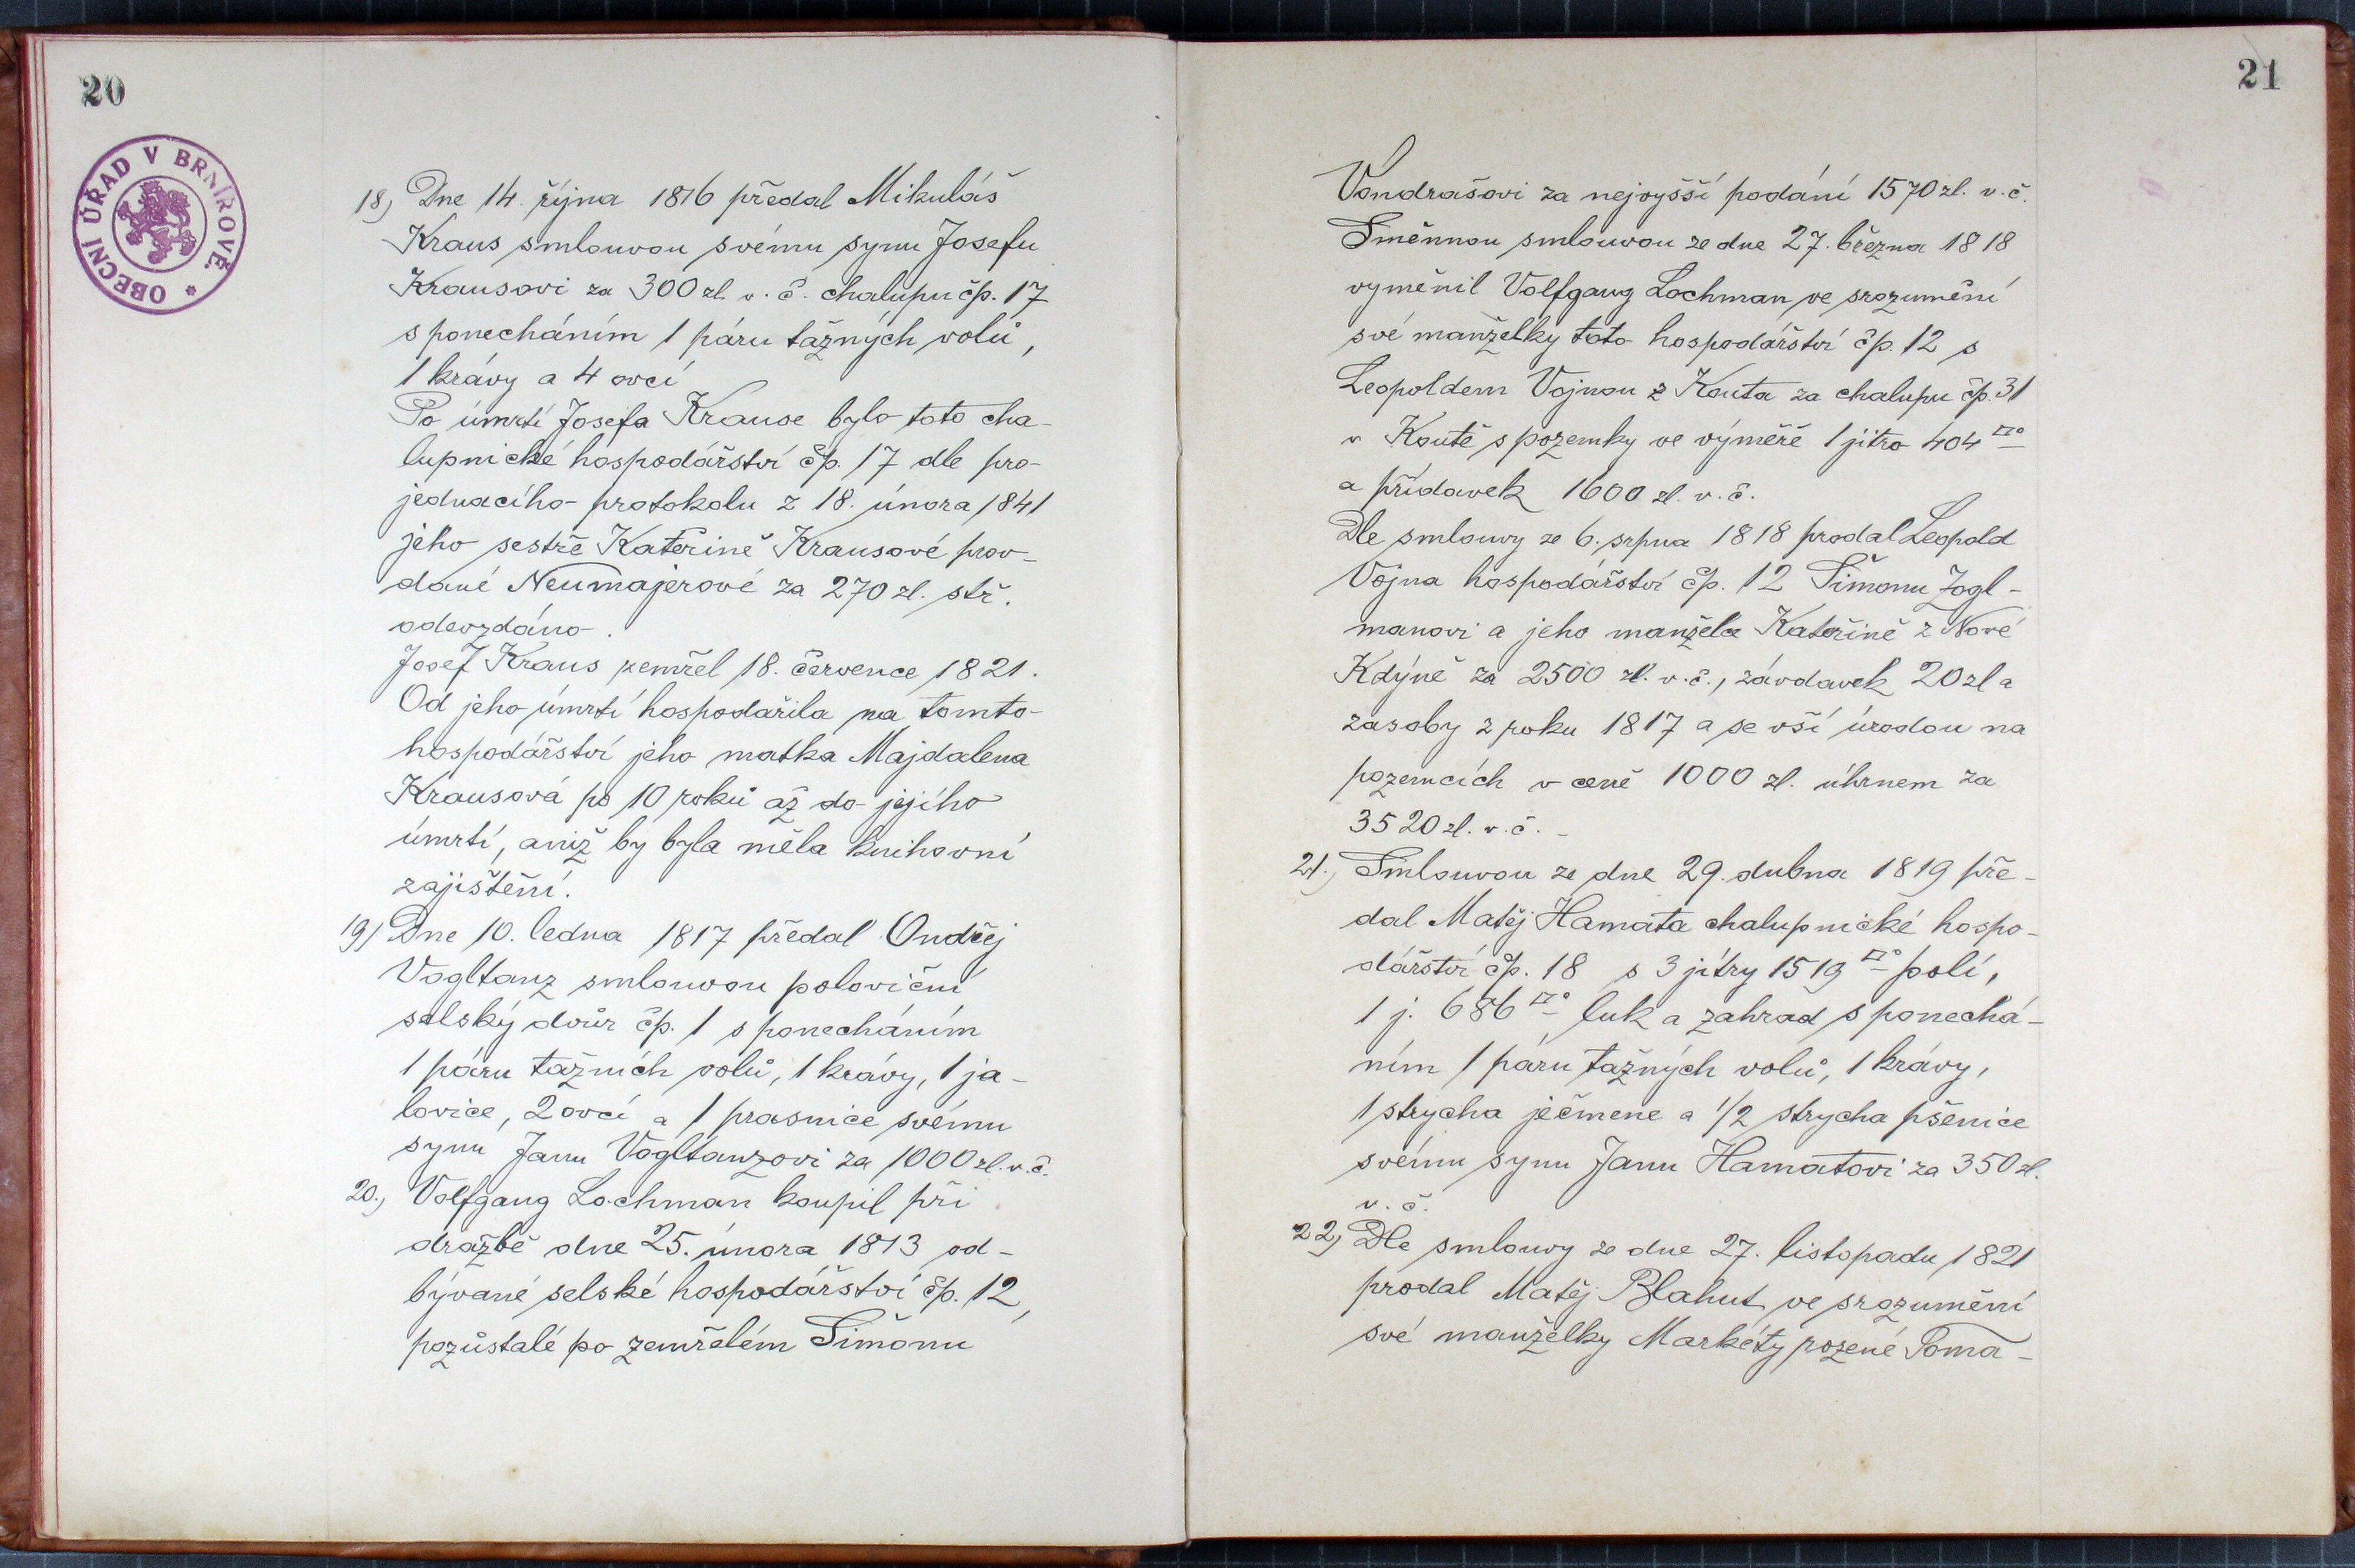 20
OBECNÍ ÚŘAD V BRNÍŘOVĚ. *
18) Dne 14. října 1816 předal Mikuláš
Kraus smlouvou svému synu Josefu
Krausovi za 300 zl. v. č. chalupu čp. 17
s ponecháním 1 páru tažných volů,
1 krávy a 4 ovcí
Po úmrtí Josefa Krause bylo toto cha-
lupnické hospodářství čp. 17 dle pro-
jednacího protokolu z 18. února 1841
jeho sestře Kateřině Krausové prov-
dané Neumajerové za 270 zl. stř.
odevzdáno.
Josef Kraus zemřel 18. července 1821.
Od jeho úmrtí hospodařila na tomto
hospodářství jeho matka Majdalena
Krausová po 10 roků až do jejího
úmrtí, aniž by byla měla knihovní
zajištění.
19) Dne 10. ledna 1817 předal Ondřej
Vogltanz smlouvou poloviční
selský dvůr čp. 1 s ponecháním
1 páru tažních volů, 1 krávy, 1 ja-
lovice, 2 ovcí a 1 prasnice svému
synu Janu Vogltanzovi za 1000 zl. v. č.
20.) Volfgang Lochman koupil při
dražbě dne 25. února 1813 od-
bývané selské hospodářství čp. 12,
pozůstalé po zemřelém Šimonu
21
Vondrašovi za nejvyšší podání 1570 zl. v. č.
Směnnou smlouvou ze dne 27. března 1818
vyměnil Volfgang Lochman ve srozumění
své manželky toto hospodářství čp. 12 s
Leopoldem Vojnou z Kouta za chalupu čp. 31
v Koutě s pozemky ve výměře 1 jitro 404 □°
a přídavek 1600 zl. v. č.
Dle smlouvy ze 6. srpna 1818 prodal Leopold
Vojna hospodářství čp. 12 Šimonu Zogl-
manovi a jeho manželce Kateřině z Nové
Kdýně za 2500 zl. v. č., závdavek 20 zl a
zasoby z roku 1817 a se vší úrodou na
pozemcích v ceně 1000 zl. úhrnem za
3520 zl. v. č. -
21.) Smlouvou ze dne 29. dubna 1819 pře-
dal Matěj Hamata chalupnické hospo-
dářství čp. 18 s 3 jitry 1519 □° polí,
1 j. 686 □° luk a zahrad s ponechá-
ním 1 páru tažných volů, 1 krávy,
1 strycha ječmene a 1/2 strycha pšenice
svému synu Janu Hamatovi za 350 zl.
v. č.
22) Dle smlouvy ze dne 27. listopadu 1821
prodal Matěj Blahut ve srozumění
své manželky Markéty rozené Toma-